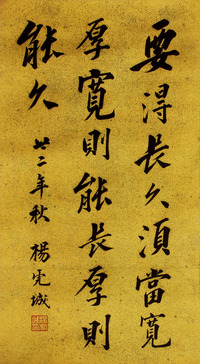 要得長久須當寬
厚寬則能長厚則
能久
廿二年秋 楊虎城